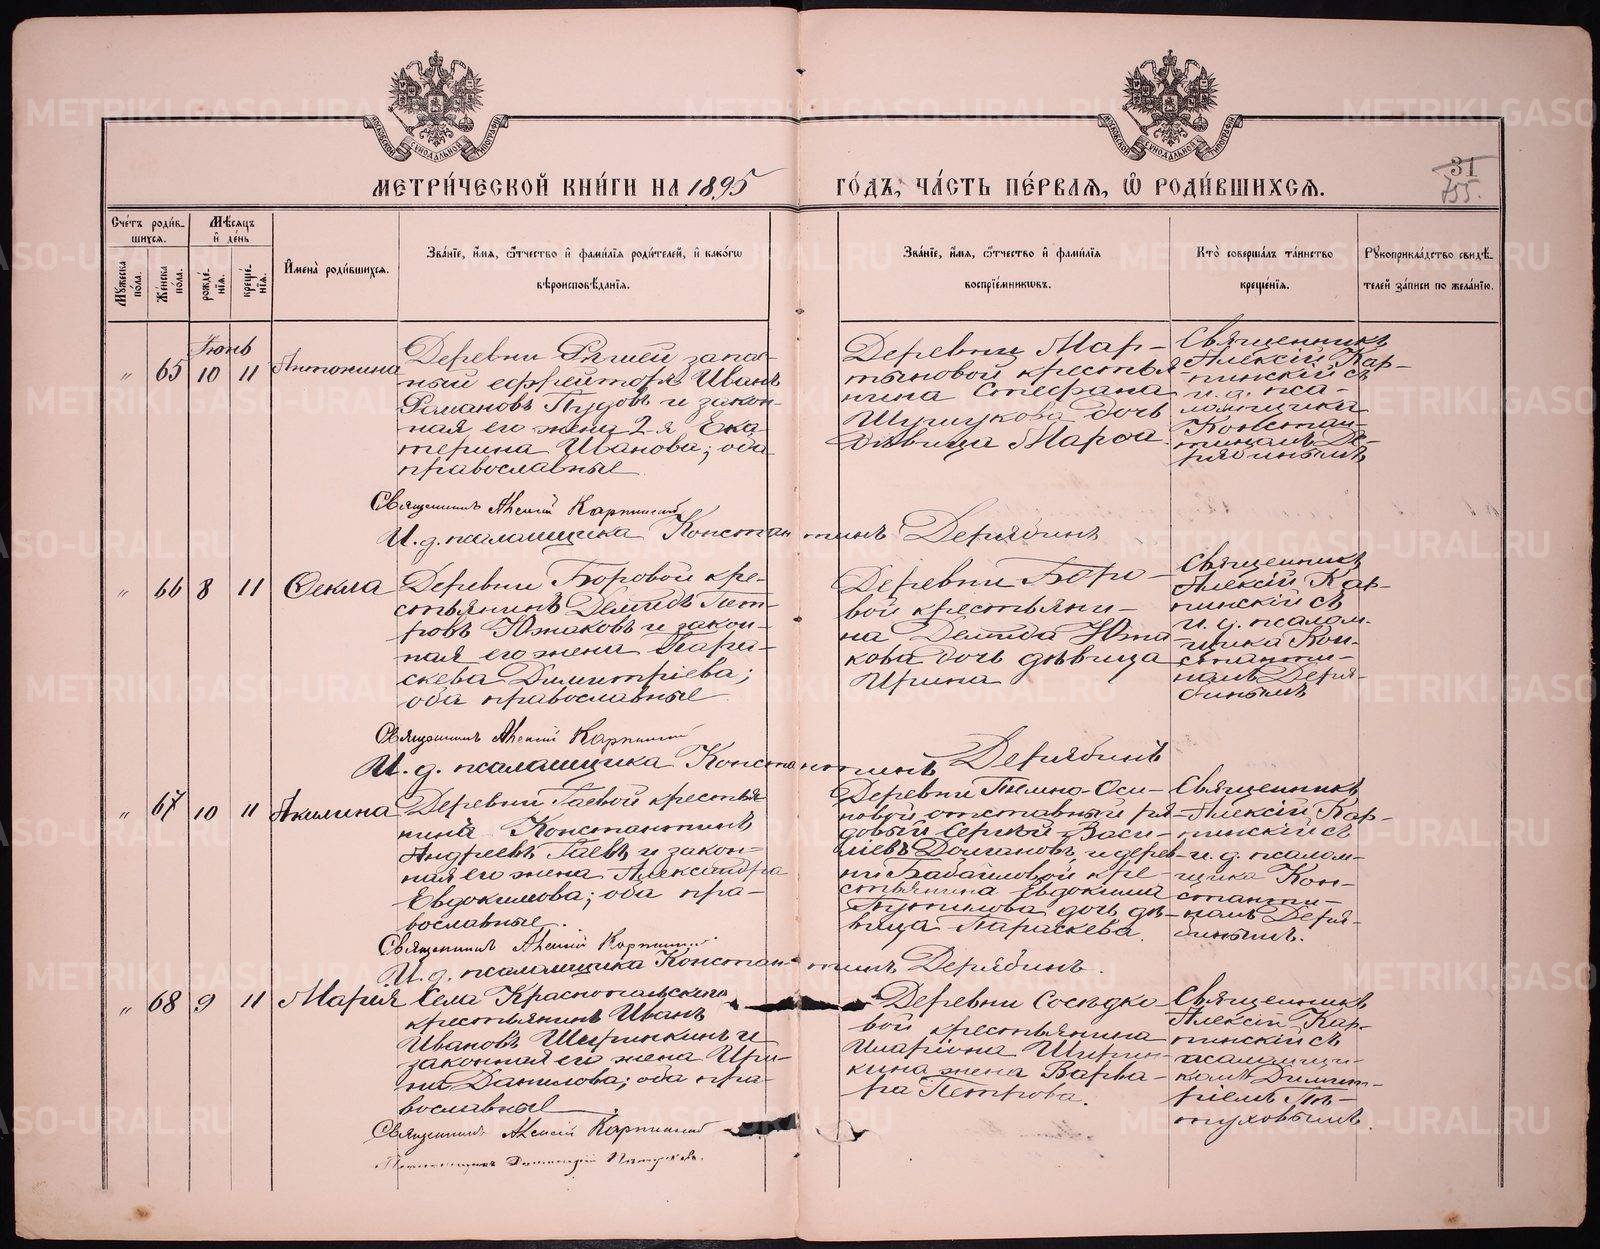 МЕТРИ́ЧЕСКОЙ КНИ́ГИ НА 1895 ГО́ДЪ, ЧА́СТЬ ПЕ́РВАЯ, Ѽ РОДИ́ВШИХСЯ.
31
755.
Сче́тъ роди́в-
шихся.
Мѣ́сяцъ
и҆ де́нь
Мꙋ́жеска по́ла.
Же́нска по́ла.
рожде́-
нїя.
креще́-
нїя.
И҆мена̀ роди́вшихся.
Зва́нїе, и҆́мя, ѻ҆́тчество и҆ фами́лїя роди́телей, и҆ како́гѡ
вѣроисповѣ́данїя.
Зва́нїе, и҆́мя, ѻ҆́тчество и҆ фами́лїя
воспрїе́мникѡвъ.
Кто̀ соверша́лъ та́инство
креще́нїя.
Рꙋкоприкла́дство свидѣ́-
телей за́писи по жела́нїю.
Іюнь
„ 65 10 11 Антонина
Деревни запа-
ный ефрейторъ Иванъ
Романовъ Пудовъ и закон-
ная его жена 2-я Ека-
терина Иванова; оба
православные
Деревни Мар-
тыновой крестья-
нина Стефана
дочь
дѣвица Марѳа.
Священникъ
Алексій Кар-
пинскій съ
и. д. пса-
ломщика
Констан-
тиномъ Де-
рябинымъ
Священникъ Алексій Карпинскій
И. д. псаломщика Константинъ Дерябинъ
„ 66 8 11 Ѳекла
Деревни Боровой кре-
стьянинъ Демидъ Пет-
ровъ Южаковъ и закон-
ная его жена Пара-
скева Димитріева;
оба православные.
Деревни Боро-
вой крестьяни-
на Демида Южа-
кова дочь дѣвица
Ирина
Священникъ
Алексій Кар-
пинскій съ
и. д. псалом-
щика Кон-
станти-
номъ Деря-
бинымъ
Священникъ Алексій Карпинскій
И. д. псаломщика Константинъ Дерябинъ
„ 67 10 11 Акилина
Деревни Гаевой крестья-
нинъ Константинъ
Андреевъ Гаевъ и закон-
ная его жена Александра
Евдокимова; оба пра-
вославные.
Деревни Оси-
новой отставный ря-
довый Сергей Васи-
ліевъ Долгановъ, и дерев-
ни Бабановой кре-
стьянина Евдокима
дочь дѣ-
вица Параскева.
Священникъ
Алексій Кар-
пинскій съ
и. д. псалом-
щика Кон-
станти-
номъ Деря-
бинымъ.
Священникъ Алексій Карпинскій
И. д. псаломщика Константинъ Дерябинъ.
„ 68 9 11 Марія
Села Краснопольскаго
крестьянинъ Иванъ
Ивановъ Ширинкинъ и
законная его жена Ири-
на Данилова; оба пра-
вославные.
Деревни Сосѣдко-
вой крестьянина
Иларіона Ширин-
кина жена Варва-
ра Петрова.
Священникъ
Алексій Кар-
пинскій съ
псаломщи-
комъ Димит-
ріемъ Пѣ-
туховымъ.
Священникъ Алексій Карпинскій
Псаломщикъ Димитрій Пѣтуховъ.
METRIKI.GASO-URAL.RU